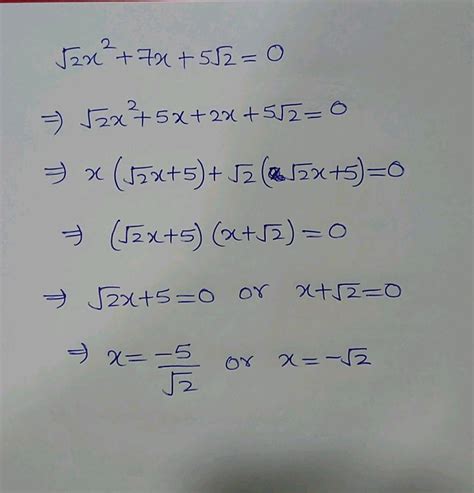 √2x² + 7x + 5√2 = 0
⇒ √2x² + 5x + 2x + 5√2 = 0
⇒ x (√2x + 5) + √2 (√2x + 5) = 0
⇒ (√2x + 5) (x + √2) = 0
⇒ √2x + 5 = 0 or x + √2 = 0
⇒ x = -5/√2 or x = -√2